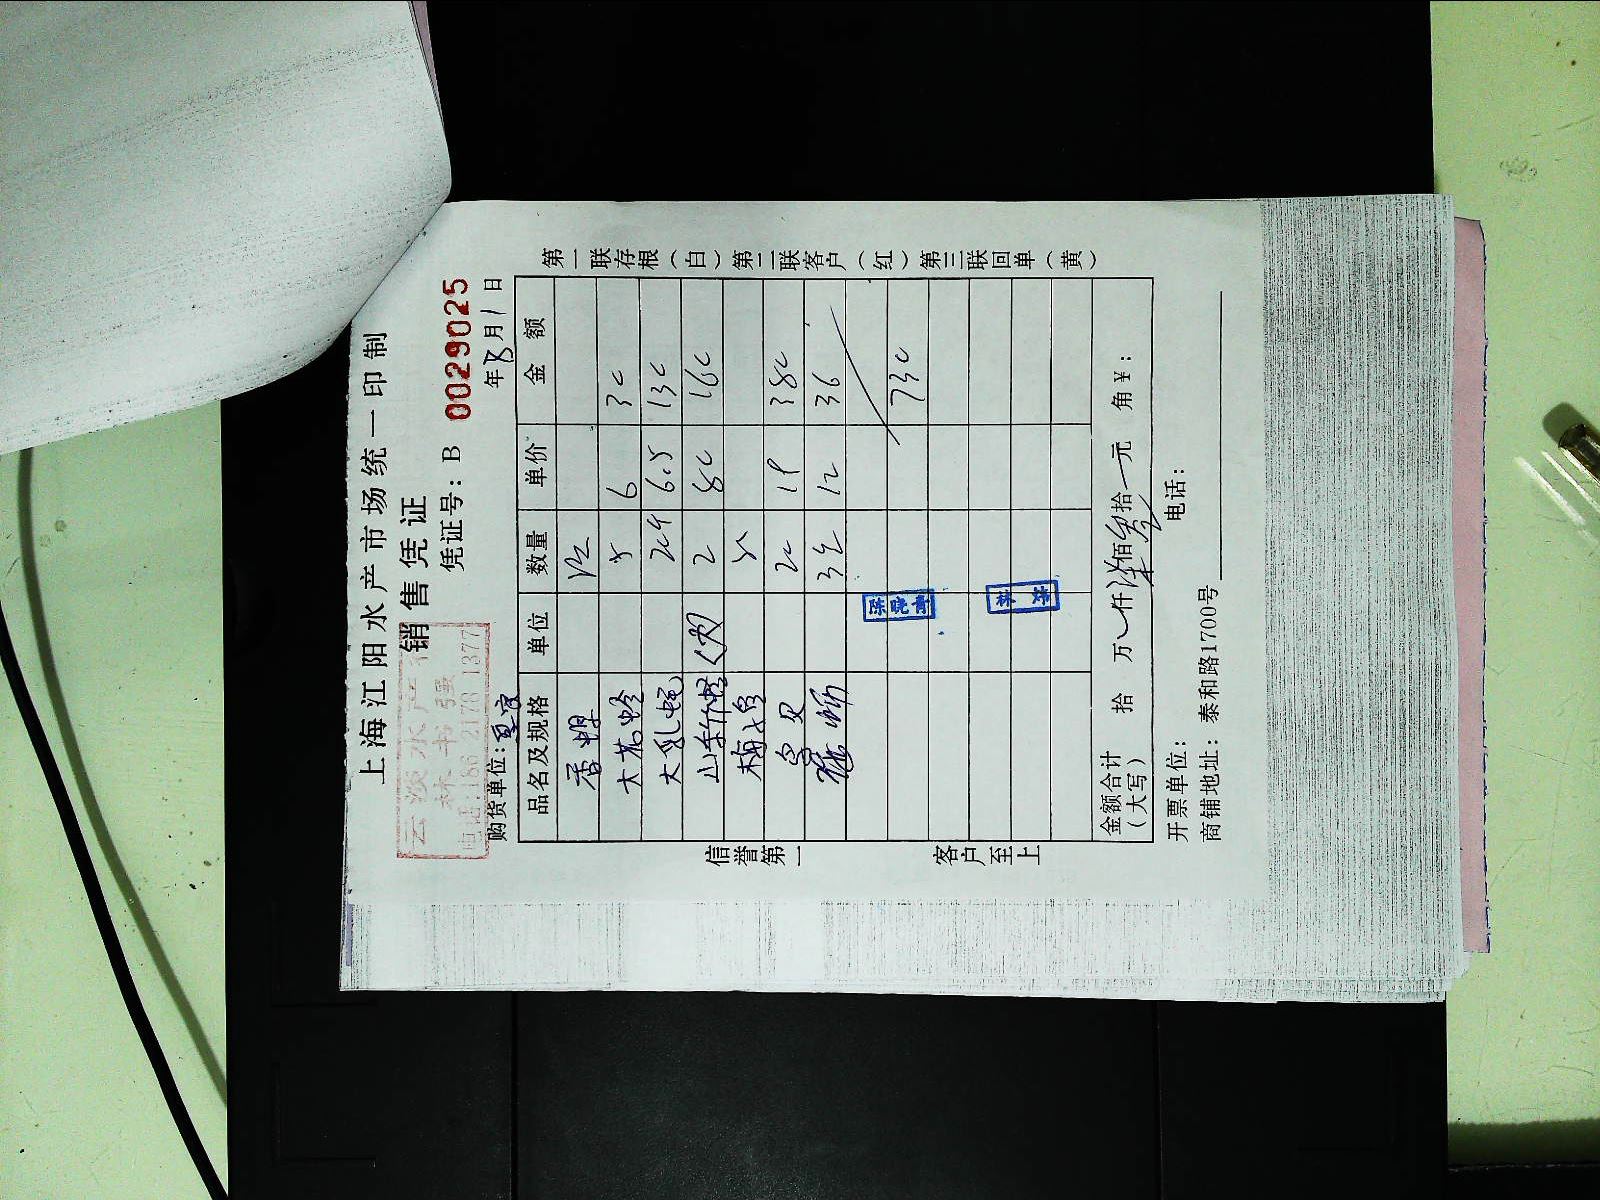 上海江阳水产市场统一印制
销售凭证
云淡水产行
林书强
电话:186 2178 1377
凭证号: B 0029025
购货单位:
年 8月1日
品名及规格 单位 数量 单价 金额
香螺
大花蛤 5 6 30
大乳蛏 204 6.5 130
2 80 160
梅蛤
鸟贝 20 19 380
3 12 36
730
陈晓青
金额合计(大写) 拾 万 仟 柒佰叁拾 元 角 ¥:
开票单位: 电话:
商铺地址: 泰和路1700号
信誉第一 客户至上
第一联存根(白)第二联客户(红)第三联回单(黄)